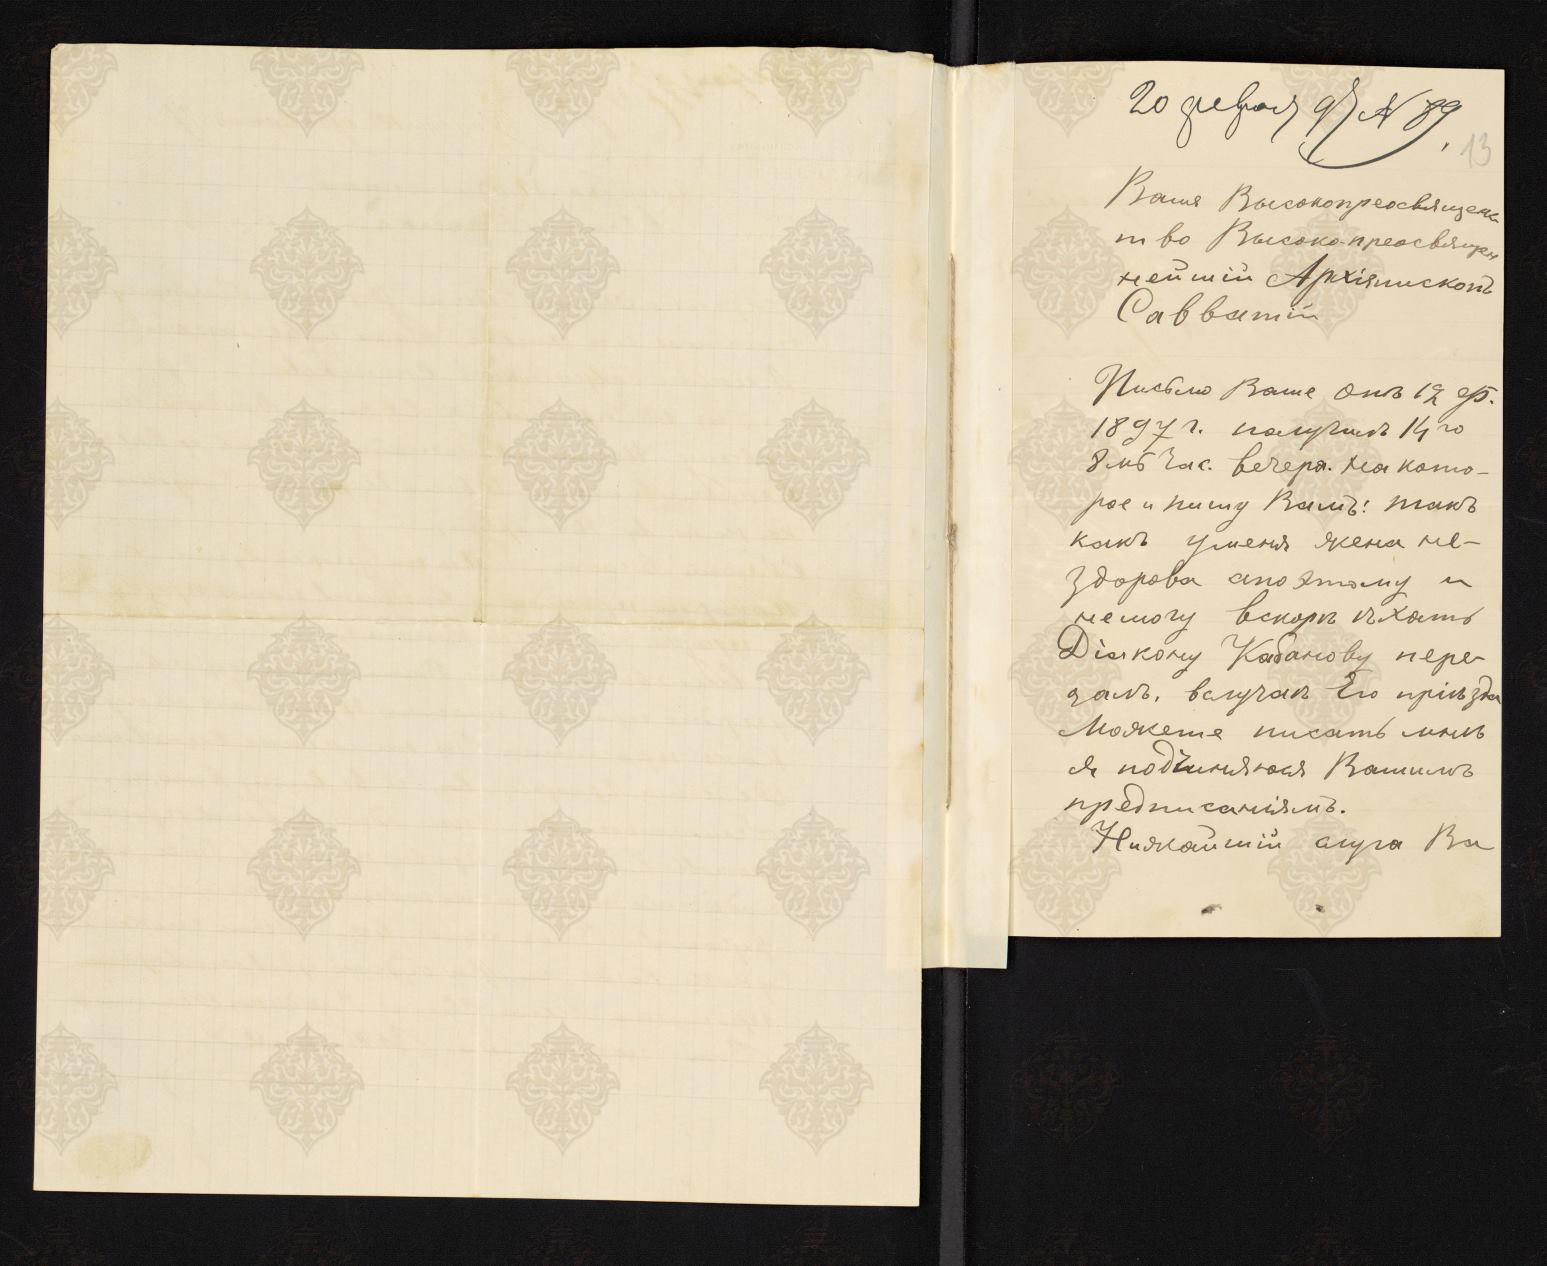 20 февраля 97 N 89.
13
Ваше Высокопреосвященс
тво Высоко-преосвящен
нейшій Архіяпископъ
Савватій
Письмо Ваше отъ 12 ф.
1897 г. получилъ 14 го
8мь час. вечера. На кото-
рое и пишу Вамъ: такъ
какъ уменя жена не-
здорова апоэтому и
немогу вскоре ѣхать
Діякону Кабанову пере-
далъ, вслучаѣ Его пріѣзда
Можете писать мнѣ
я подчиняюся Вашимъ
предписаніямъ.
Нижайшій слуга Ва